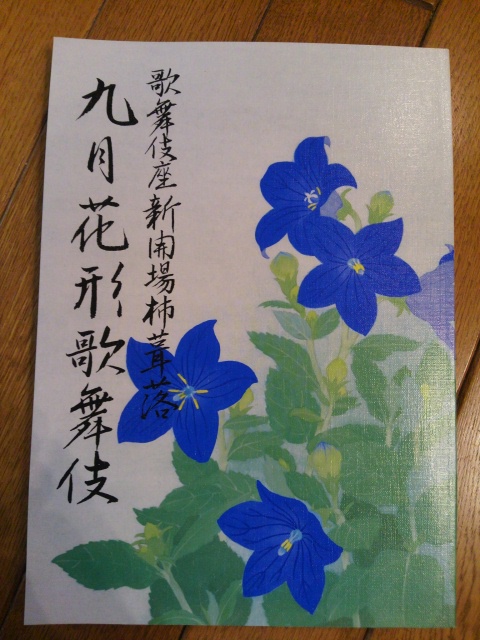 歌舞伎座新開場杮葺落
九月花形歌舞伎